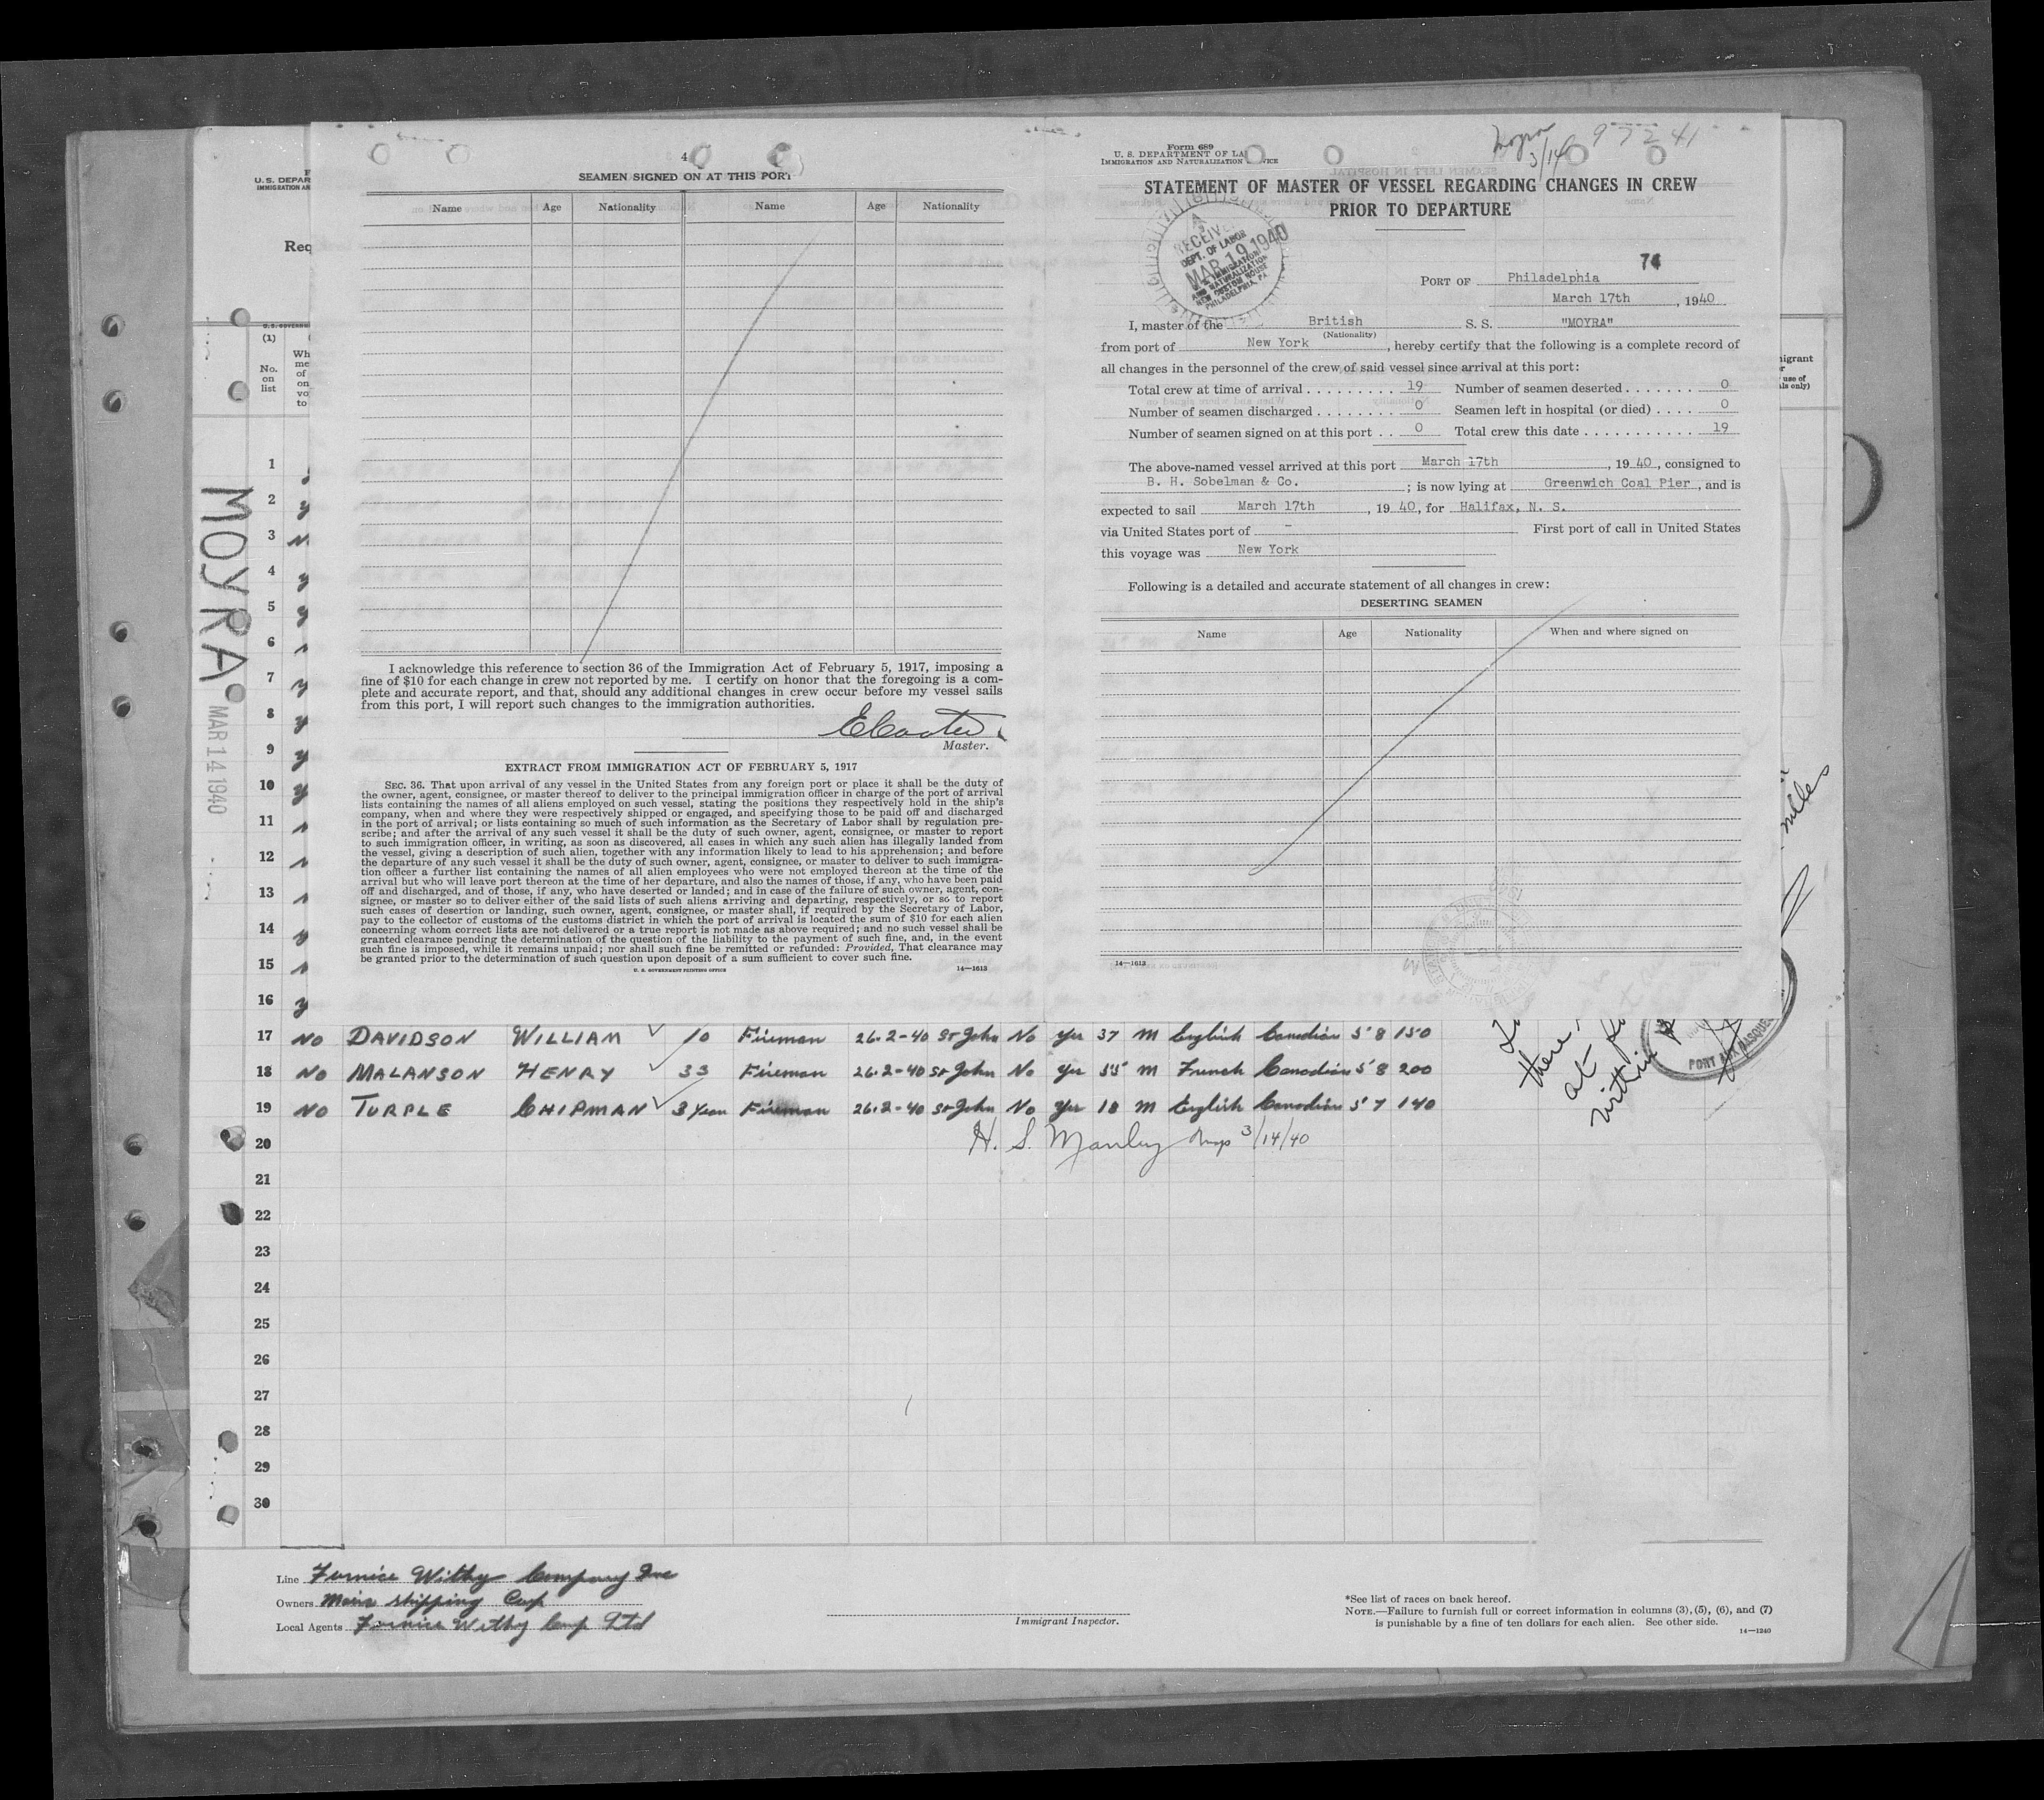 4
SEAMEN SIGNED ON AT THIS PORT
Name Age Nationality Name Age Nationality
I acknowledge this reference to section 36 of the Immigration Act of February 5, 1917, imposing a
fine of $10 for each change in crew not reported by me. I certify on honor that the foregoing is a com-
plete and accurate report, and that, should any additional changes in crew occur before my vessel sails
from this port, I will report such changes to the immigration authorities.
Master.
EXTRACT FROM IMMIGRATION ACT OF FEBRUARY 5, 1917
SEC. 36. That upon arrival of any vessel in the United States from any foreign port or place it shall be the duty of
the owner, agent, consignee, or master thereof to deliver to the principal immigration officer in charge of the port of arrival
lists containing the names of all aliens employed on such vessel, stating the positions they respectively hold in the ship's
company, when and where they were respectively shipped or engaged, and specifying those to be paid off and discharged
in the port of arrival; or lists containing so much of such information as the Secretary of Labor shall by regulation pre-
scribe; and after the arrival of any such vessel it shall be the duty of such owner, agent, consignee, or master to report
to such immigration officer, in writing, as soon as discovered, all cases in which any such alien has illegally landed from
the vessel, giving a description of such alien, together with any information likely to lead to his apprehension; and before
the departure of any such vessel it shall be the duty of such owner, agent, consignee, or master to deliver to such immigra-
tion officer a further list containing the names of all alien employees who were not employed thereon at the time of the
arrival but who will leave port thereon at the time of her departure, and also the names of those, if any, who have been paid
off and discharged, and of those, if any, who have deserted or landed; and in case of the failure of such owner, agent, con-
signee, or master so to deliver either of the said lists of such aliens arriving and departing, respectively, or so to report
such cases of desertion or landing, such owner, agent, consignee, or master shall, if required by the Secretary of Labor,
pay to the collector of customs of the customs district in which the port of arrival is located the sum of $10 for each alien
concerning whom correct lists are not delivered or a true report is not made as above required; and no such vessel shall be
granted clearance pending the determination of the question of the liability to the payment of such fine, and, in the event
such fine is imposed, while it remains unpaid; nor shall such fine be remitted or refunded: Provided, That clearance may
be granted prior to the determination of such question upon deposit of a sum sufficient to cover such fine.
U. S. GOVERNMENT PRINTING OFFICE 14—1613
Moyra 3/14 97241
Form 689
U. S. DEPARTMENT OF LA
IMMIGRATION AND NATURALIZATION VICE
STATEMENT OF MASTER OF VESSEL REGARDING CHANGES IN CREW
PRIOR TO DEPARTURE
RECEIVED
DEPT. OF LABOR
MAR 19 1940
IMMIGRATION
AND NATURALIZATION
NEW CUSTOM HOUSE
PHILADELPHIA, PA
PORT OF Philadelphia
March 17th, 1940
I, master of the British S. S. "MOYRA"
(Nationality)
from port of New York, hereby certify that the following is a complete record of
all changes in the personnel of the crew of said vessel since arrival at this port:
Total crew at time of arrival 19 Number of seamen deserted 0
Number of seamen discharged 0 Seamen left in hospital (or died) 0
Number of seamen signed on at this port 0 Total crew this date 19
The above-named vessel arrived at this port March 17th, 1940, consigned to
B. H. Sobelman & Co. ; is now lying at Greenwich Coal Pier, and is
expected to sail March 17th, 1940, for Halifax, N. S.
via United States port of - First port of call in United States
this voyage was New York
Following is a detailed and accurate statement of all changes in crew:
DESERTING SEAMEN
Name Age Nationality When and where signed on
14—1613
U. S. DEPAR
IMMIGRATION AN
Req
(1)
No. on list
MOYRA
MAR 14 1940
1
2
3
4
5
6
7
8
9
10
11
12
13
14
15
16
17 No DAVIDSON WILLIAM 10 Fireman 26-2-40 St John No Yes 37 M English Canadian 5'8 150
18 No MALANSON HENRY 33 Fireman 26-2-40 St John No Yes 55 M French Canadian 5'8 200
19 No TURPLE CHIPMAN 3 Year Fireman 26-2-40 St John No Yes 18 M English Canadian 5'7 140
20 H. S. Manley 3/14/40
21
22
23
24
25
26
27
28
29
30
there
at
within
PORT AUX BASQUES
Line Furness Withy Company Inc
Owners Shipping Corp
Local Agents Furness Withy Comp Ltd
Immigrant Inspector.
*See list of races on back hereof.
NOTE.—Failure to furnish full or correct information in columns (3), (5), (6), and (7)
is punishable by a fine of ten dollars for each alien. See other side.
14—1240